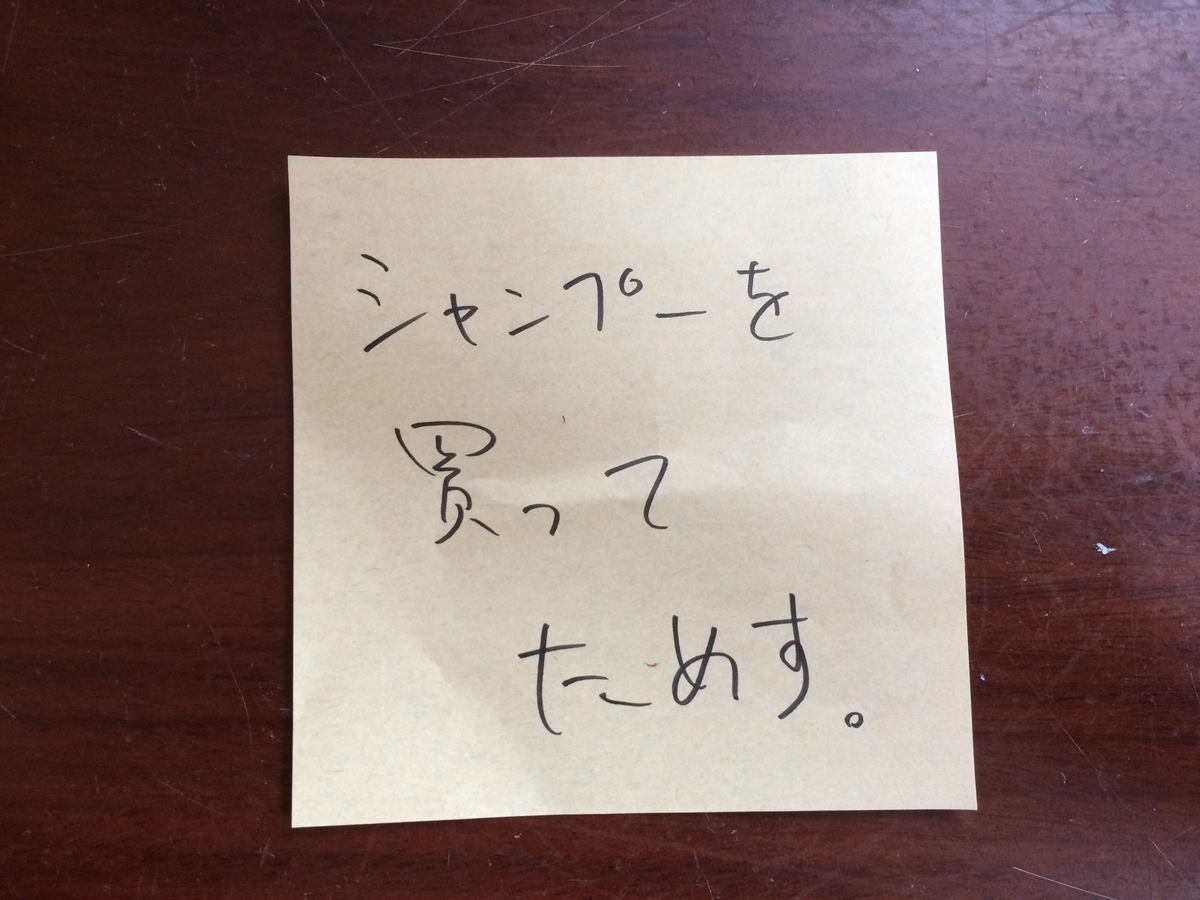 シャンプーを
買って
ためす。